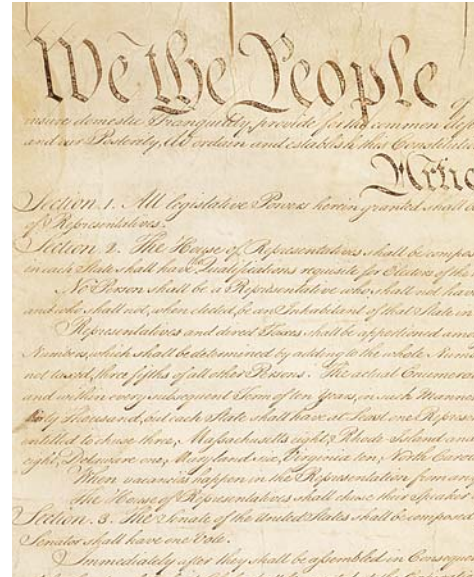 We the People of
insure domestic Tranquility, provide for the common def
and our Posterity, do ordain and establish this Constitutio
Artic
Section. 1. All legislative Powers herein granted shall b
of Representatives.
Section. 2. The House of Representatives shall be compos
in each State shall have Qualifications requisite for Electors of the
No Person shall be a Representative who shall not have
and who shall not, when elected, be an Inhabitant of that State in
Representatives and direct Taxes shall be apportioned amo
Numbers, which shall be determined by adding to the whole Num
not taxed, three fifths of all other Persons. The actual Enumera
and within every subsequent Term of ten Years, in such Manne
thirty Thousand, but each State shall have at Least one Repres
entitled to chuse three, Massachusetts eight, Rhode-Island an
eight, Delaware one, Maryland six, Virginia ten, North Caro
When vacancies happen in the Representation from an
The House of Representatives shall chuse their Speaker
Section. 3. The Senate of the United States shall be composed
Senator shall have one Vote.
Immediately after they shall be assembled in Conseque